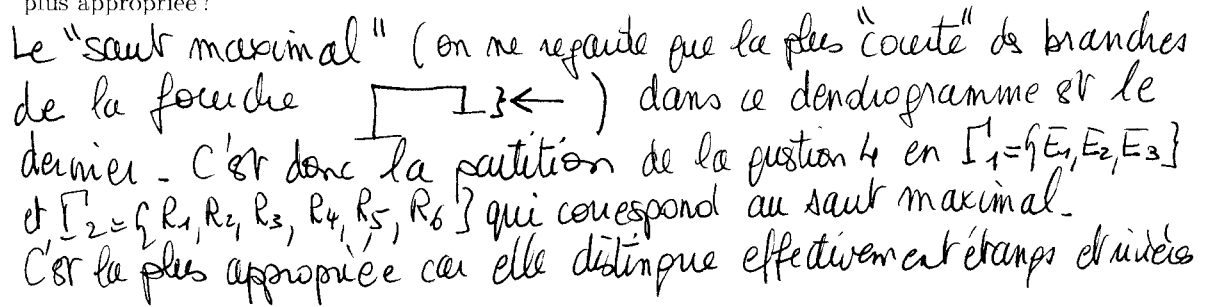 plus appropriée ?
Le "saut maximal" (on ne regarde que la plus "courte" des branches
de la fourche }← ) dans ce dendrogramme est le
dernier. C'est donc la partition de la question 4 en Γ₁={E₁,E₂,E₃}
et Γ₂={R₁,R₂,R₃,R₄,R₅,R₆} qui correspond au saut maximal.
C'est la plus appropriée car elle distingue effectivement étangs et rivières